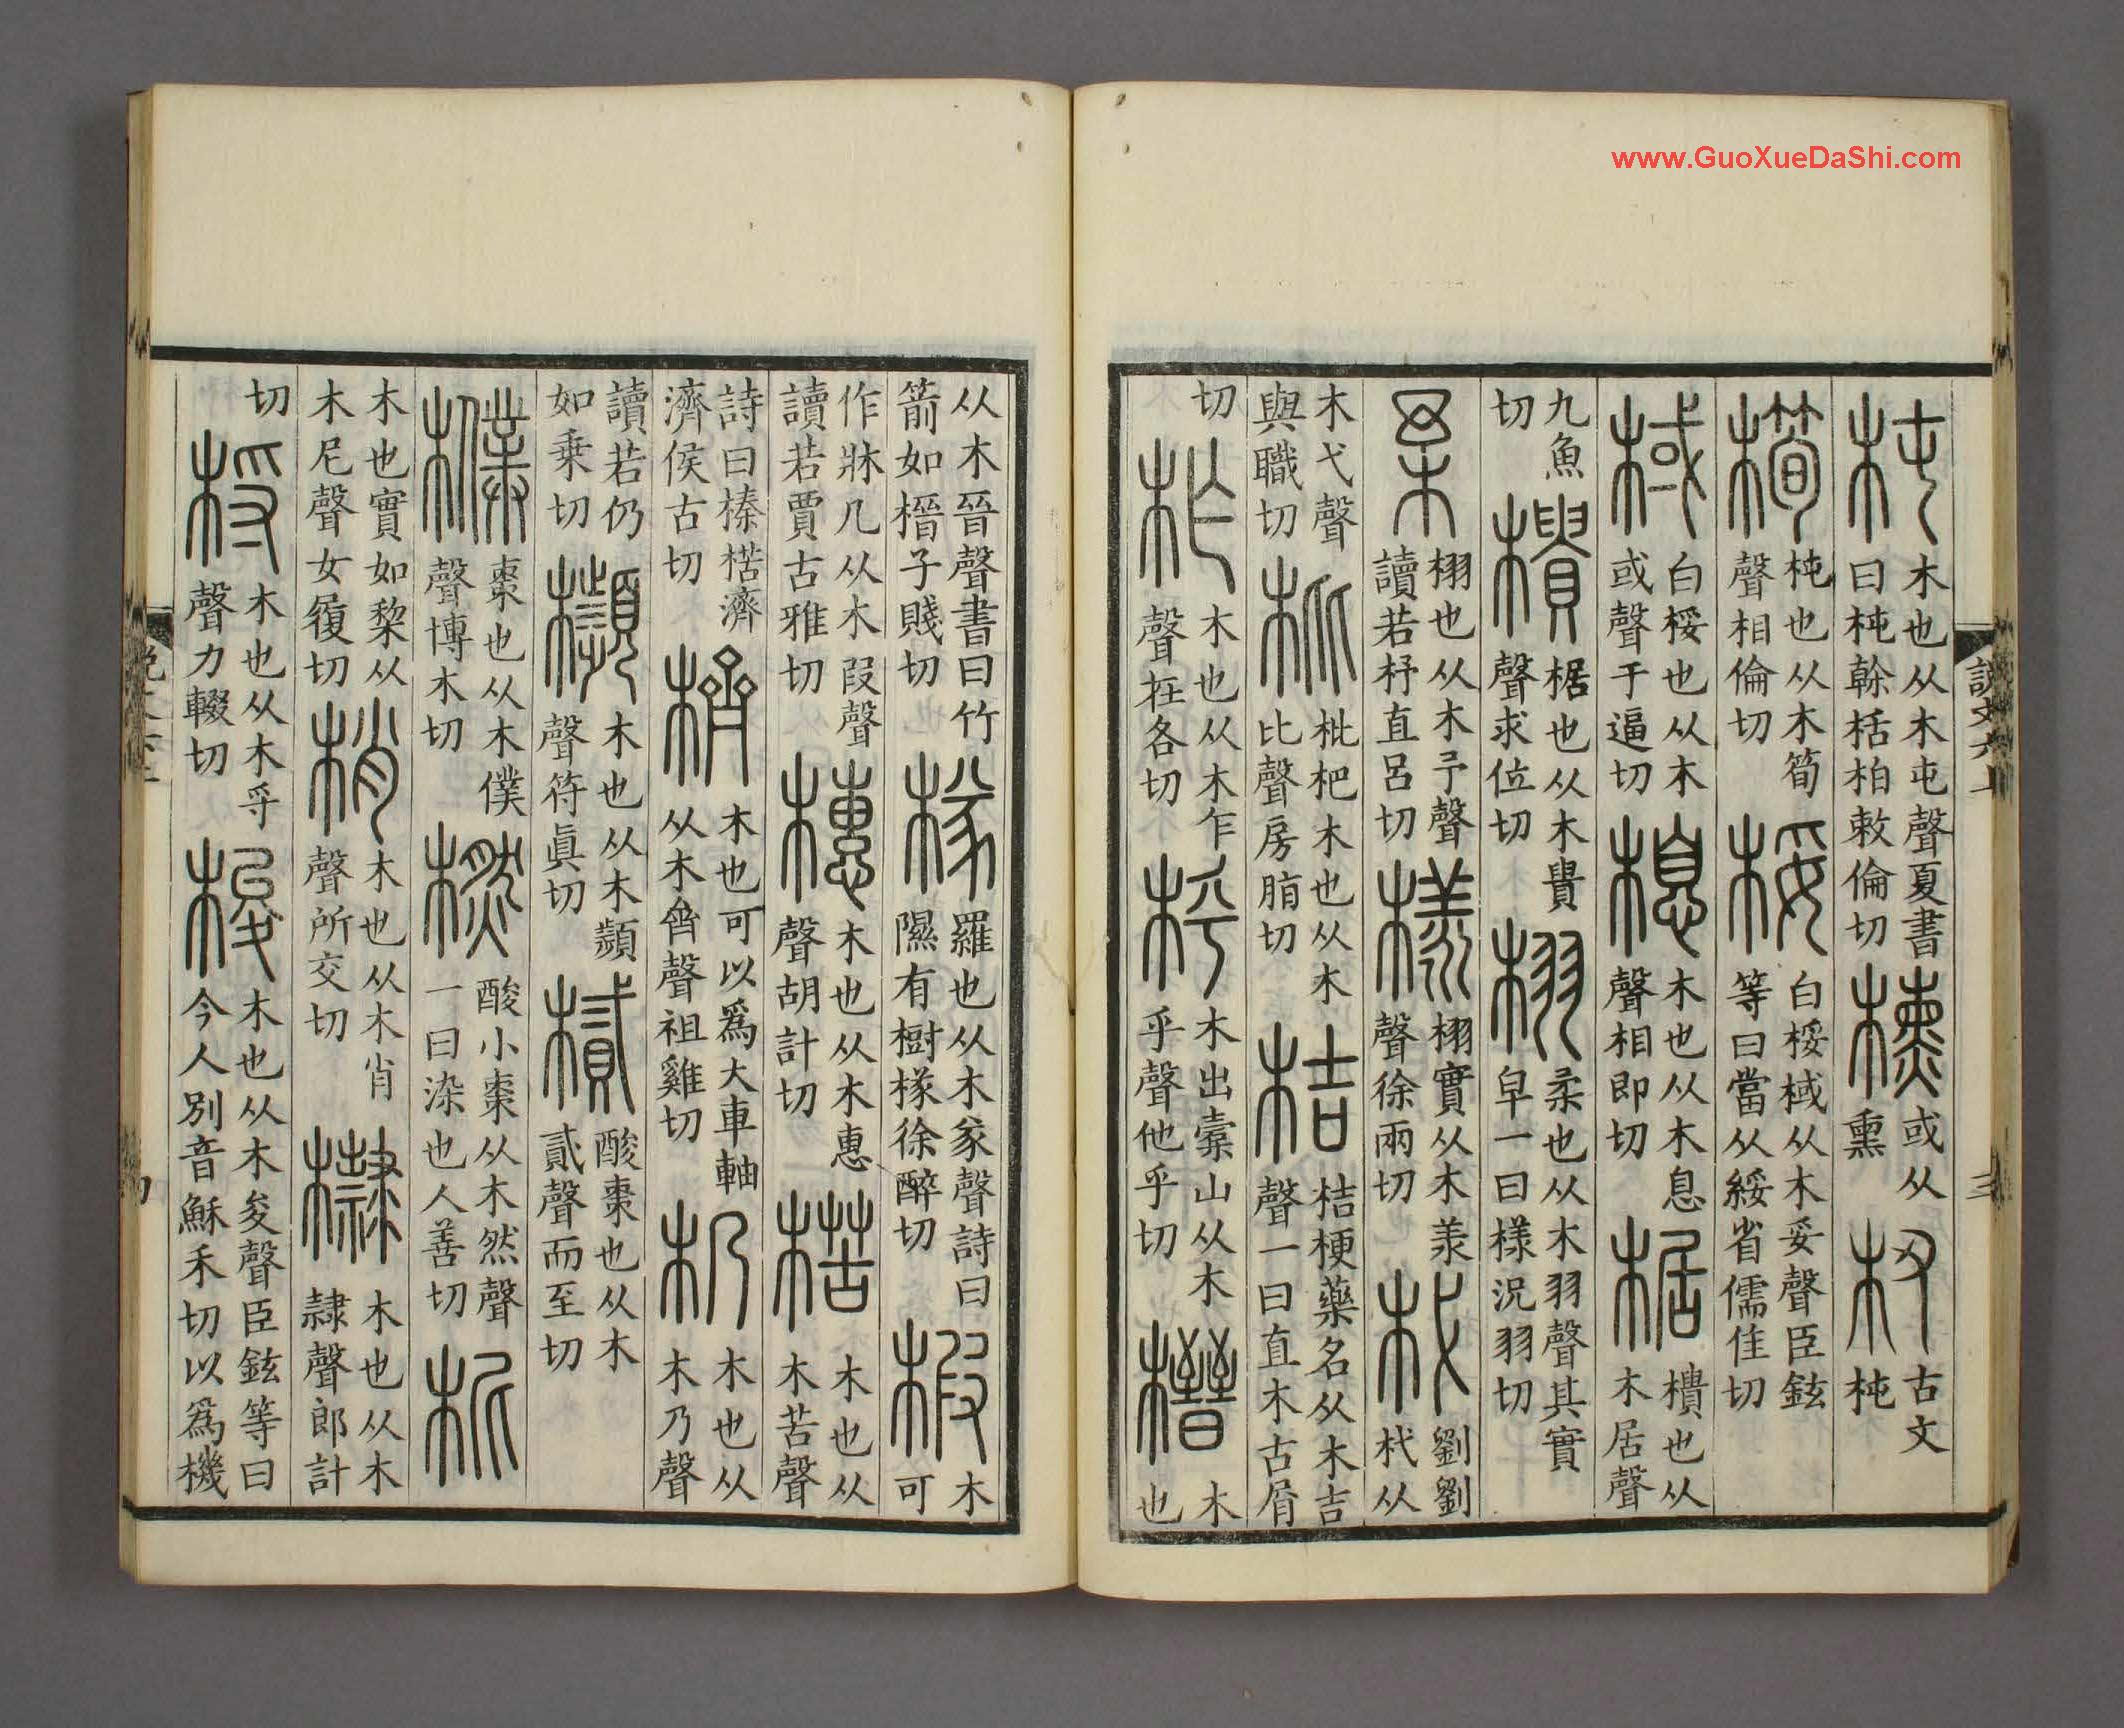 www.GuoXueDaShi.com
杶木也从木屯聲夏書曰杶榦栝柏敕倫切櫄或从熏杻古文杶
橁杶也从木筍聲相倫切桵白桵棫从木妥聲臣鉉等曰當从綏省儒隹切
棫白桵也从木或聲于逼切㮩木也从木息聲相即切椐樻也从木居聲
九魚切樻椐也从木貴聲求位切栩柔也从木羽聲其實早一曰樣況羽切
柔栩也从木予聲讀若杼直呂切樣栩實从木羕聲徐兩切杙劉劉杙从
木弋聲與職切枇枇杷木也从木比聲房脂切桔桔梗藥名从木吉聲一曰直木古屑
切柞木也从木乍聲在各切木出橐山从木乎聲他乎切榗木也
說文六上 三
从木晉聲書曰竹箭如榗子賤切檖羅也从木㒸聲詩曰隰有樹檖徐醉切椵木可
作牀几从木叚聲讀若賈古雅切橞木也从木惠聲胡計切楛木也从木苦聲
詩曰榛楛濟濟侯古切櫅木也可以爲大車軸从木齊聲祖雞切木也从木乃聲
讀若仍如乗切櫇木也从木頻聲符眞切樲酸棗也从木貳聲而至切
棗也从木僕聲博木切橪酸小棗从木然聲一曰染也人善切柅
木也實如棃从木尼聲女履切梢木也从木肖聲所交切木也从木隸聲郎計
切木也从木寽聲力輟切梭木也从木夋聲臣鉉等曰今人別音穌禾切以爲機